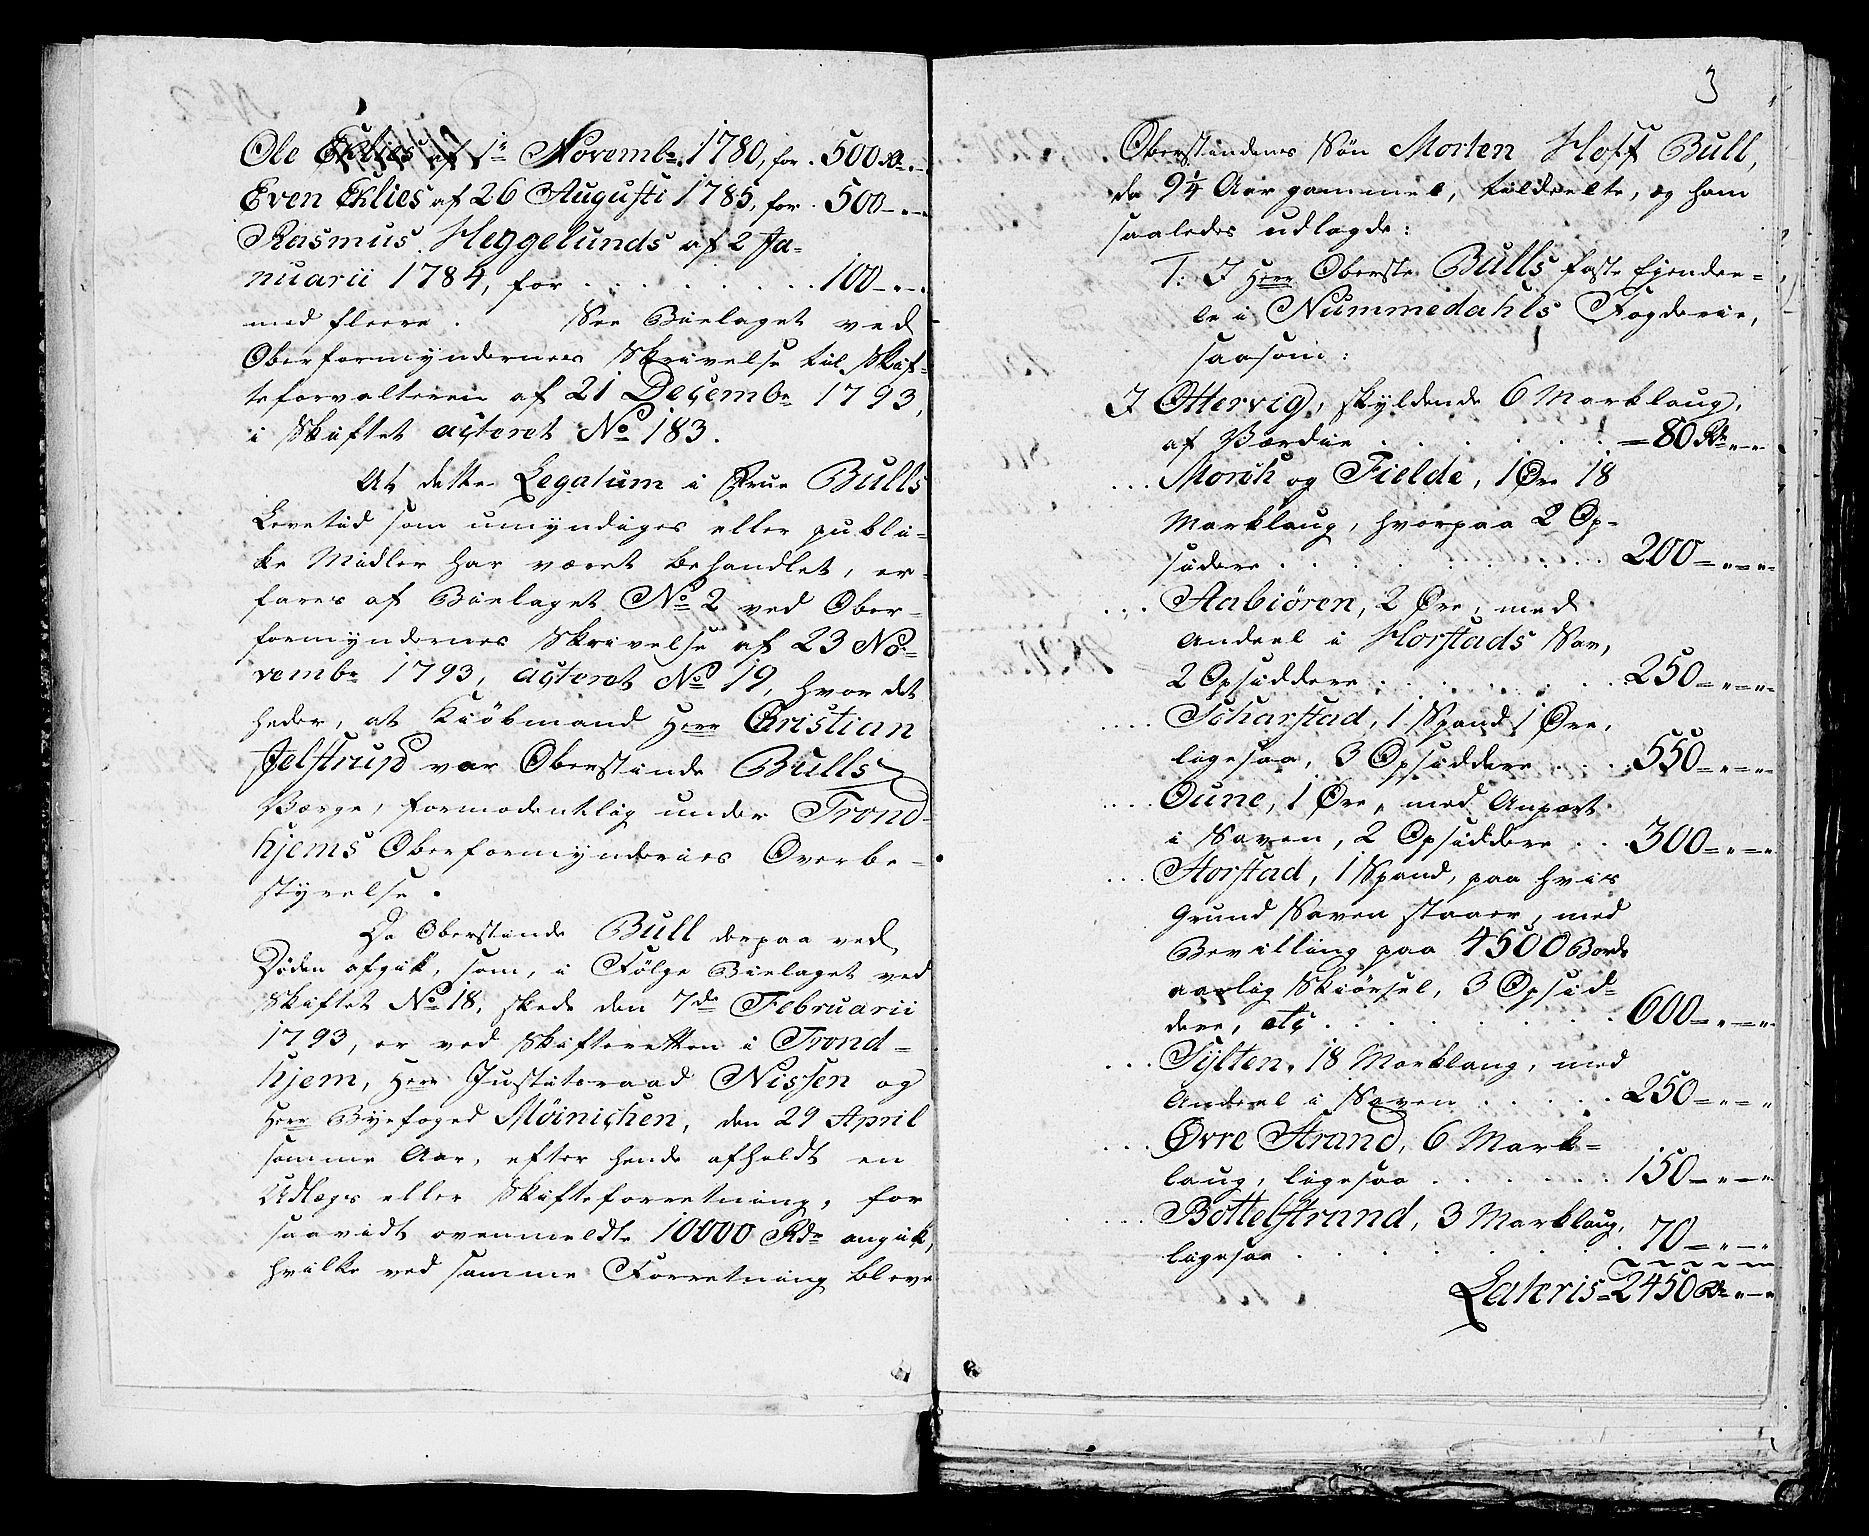 Ole Eklies af 1te Novembr. 1780, for . 500 Rd.
Even Eklies af 26 Augusti 1785, for . 500 - " -
Rasmus Heggelunds af 2 Ja-
nuarii 1784, for . . . . . . . . 100 - " -
med fleere. See Bielaget ved
Oberformyndernes Skrivelse til Skif-
teforvalteren af 21 Decembr 1793,
i Skiftet acteret No 183.
At dette Legatum i Frue Bulls
Levetid som umyndiges eller publi-
ke Midler har været behandlet, er-
fares af Bielaget No 2 ved Ober-
formyndernes Skrivelse af 23 No-
vembr 1793, acteret No 19, hvor det
heder, at Kiöbmand Herr Christian
Jelstrup var Oberstinde Bulls
Værge, formodentlig under Trond-
hjems Oberformynderies Overbe-
styrelse.
Da Oberstinde Bull derpaa ved
Döden afgik, som, i Fölge Bielaget ved
Skiftet No 18, skede den 7de Februarii
1793, er ved Skifteretten i Trond-
hjem, Herr Justitsraad Nissen og
Herr Byefoged Möinichen, den 29 April
samme Aar, efter hende afholdt en
Udlægs eller Skifteforretning, for
saavidt ovenmeldte 10000 Rdr angik,
hvilke ved samme Forretning bleve
3
Oberstindens Sön Morten Hoff Bull,
da 9 1/4 Aar gammel, tildeelte, og ham
saaledes udlagde:
1: I Herr Oberste Bulls faste Eiendee-
le i Nummedahls Fogderie,
saasom:
I Ottervig, skyldende 6 Marklaug,
af Værdie . . . . . . . - 80 Rd " - "
... Morch og Fielde, 1 Öre 18
Marklaug, hvorpaa 2 Op-
sidere . . . . . . . . . 200 - " - "
... Aabiören, 2 Öre, med
Andeel i Horstads Sav,
2 Opsiddere . . . . . . . 250 - " - "
.... Scharstad, 1 Spand 1 Öre,
ligesaa, 3 Opsiddere . . . 550 - " - "
.... Oune, 1 Öre, med Anpart
i Saven, 2 Opsiddere . . . 300 - " - "
... Horstad, 1 Spand, paa hvis
Grund Saven staaer, med
Bevilling paa 4500 Bords
aarlig Skiörsel, 3 Opsid-
dere, etc . . . . . . . . 600 - " - "
... Sylten, 18 Marklaug, med
Andeel i Saven . . . . . 250 - " - "
... Øvre Strand, 6 Mark-
laug, ligesaa . . . . . . 150 - " - "
.... Bottelstrand, 3 Marklaug,
ligesaa . . . . . . . . . 70 - " - "
Lateris - 2450 Rd " - "